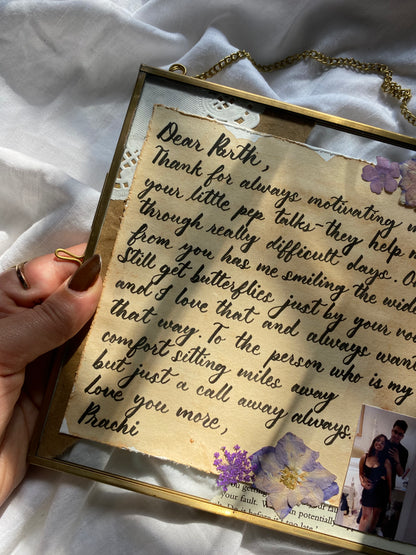 Dear Parth,
Thank for always motivating m
your little pep talks-they help m
through really difficult days. O
from you has me smiling the wide
Still get butterflies just by your vo
and I love that and always want
that way. To the person who is my
comfort sitting miles away
but just a call away always.
Love you more,
Prachi
your fault. W
n potentially
Do it before it's too late.